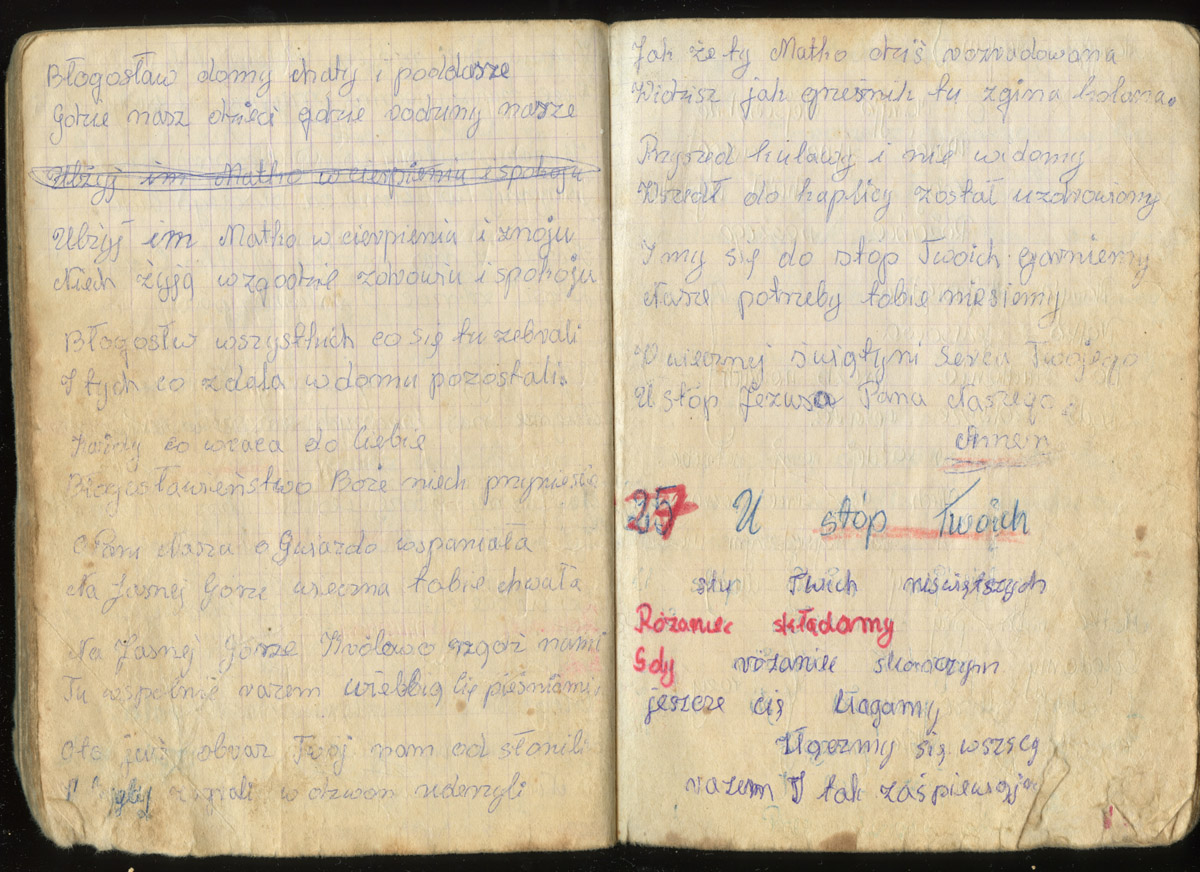 Błogosław domy chaty i poddasze
Gdzie nasz dzieci gdzie rodziny nasze
Ulżyj im Matko w cierpieniu i spokoju
Ulżyj im Matko w cierpieniu i znoju
Niech żyją wzgodzie zdrowiu i spokoju
Błogosłw wszystkich co się tu zebrali
I tych co zdala w domu pozostali.
Każdy co wraca do Ciebie
Błogosławieństwo Boże niech przyniesie
O Pani Nasza o Gwiazdo wspaniała
Na Jasnej Górze wieczna tobie chwała
Na Jasnej Górze Królowo rządź nami
Tu wspólnie razem wielbią Cię pieśniami
Oto już obraz Twój nam od słonili
w dzwon uderzyli
Jak że ty Matko dziś rozradowana
Widzisz jak grzesnik tu zgina kolana.
Przyszed kulawy i nie widomy
Wszedł do kaplicy został uzdrowiony
I my się do stóp Twoich garniemy
Nasze potrzeby tobie niesiemy
O wiecznej świątyni Serca Twojego
U stóp Jezusa Pana Naszego.
Amen
27 U stóp Twoich
stup Twich niświętszych
Różaniec składamy
Gdy różaniec skończym
jeszcze cię błagamy
Uczmy się wszscy
razem I tak zaśpiewaja